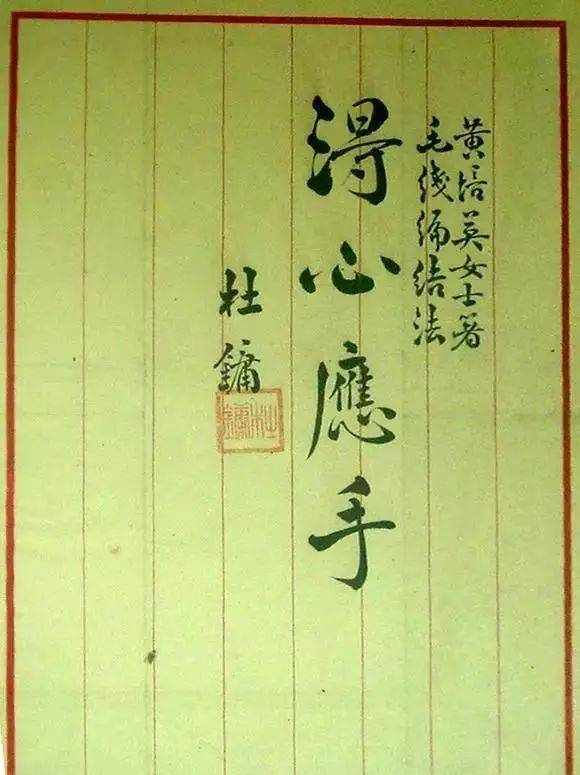 黄培英女士著
毛线编结法
得心應手
杜鏞
杜鏞